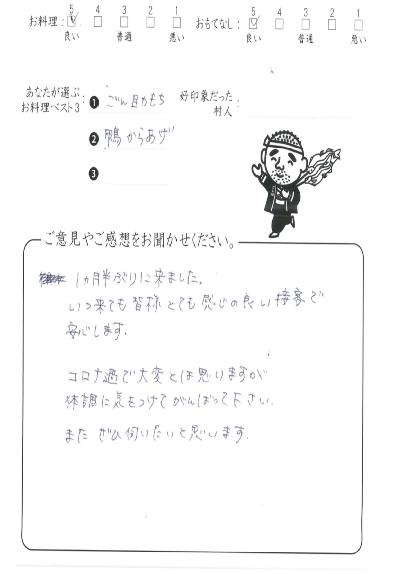 5 4 3 2 1
お料理: 良い 普通 悪い
5 4 3 2 1
おもてなし: 良い 普通 悪い
あなたが選ぶ
お料理ベスト3
❶
❷ 鴨からあげ
❸
好印象だった
村人
ご意見やご感想をお聞かせください。
1ヵ月半ぶりに来ました。
いつ来ても皆様とても感じの良い接客で
安心します。
コロナ過で大変とは思いますが
体調に気をつけてがんばって下さい。
またぜひ伺いたいと思います。